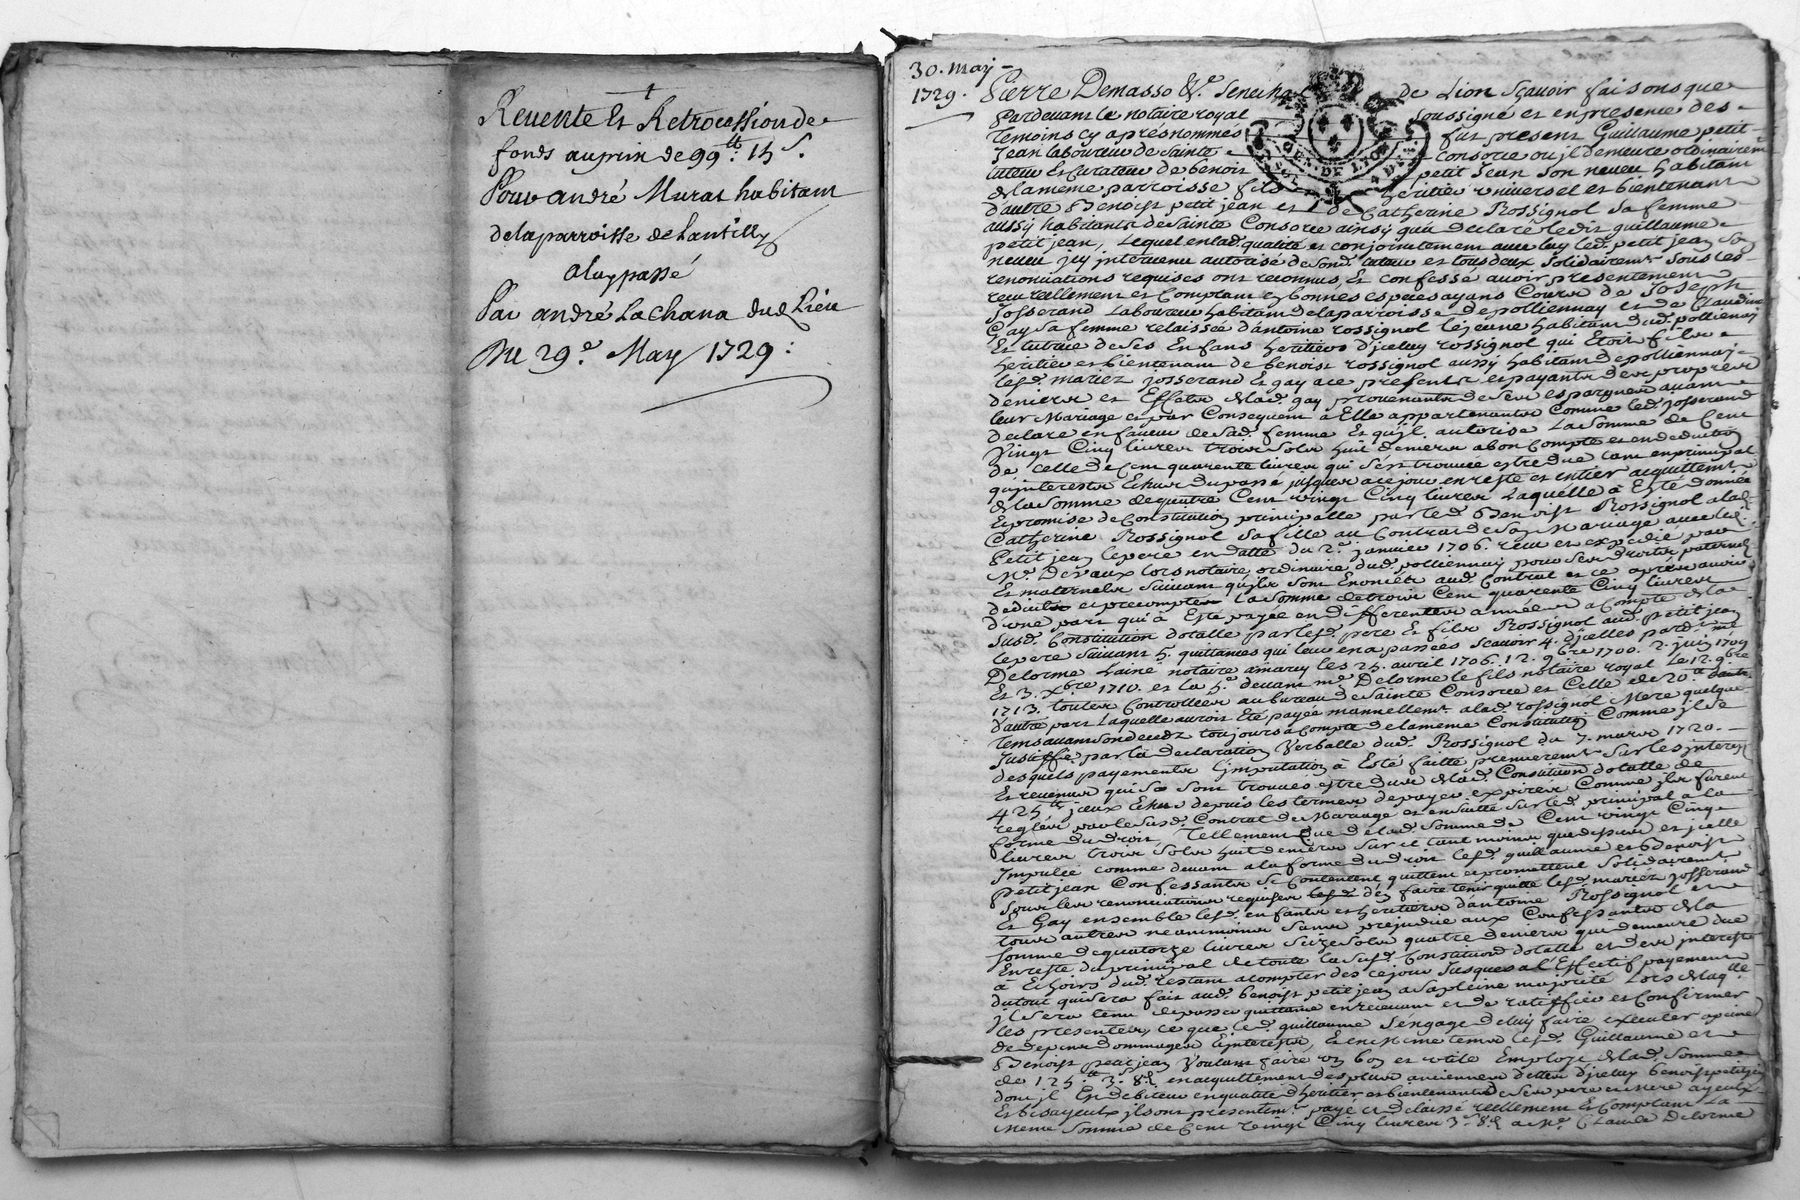 Reuente Et Retrocession de
fonds au prix de 99tt: 15s.
Pour andré Murat habitant
de la parroisse de Lantilly
a luy passé
Par andré La Chana dud Lieu
Du 29e. May 1729:
30. may
1729.
Pierre Demasso &c. Senechal de Lion Sçavoir faisons que
Pardevant le notaire royal soussigné et en presence des
temoins cy aprés nommés fut present Guillaume petit
Jean laboureur de Sainte Consorce ou il demeure ordinairemt
tuteur Et Curateur de benoit petit Jean son neveu habitant
de la meme parroisse fils heritier universel et bientenant
d'autre Benoist petit jean et de Catherine Rossignol Sa femme
aussy habitants de Sainte Consorce ainsy que declare ledit guillaume
petit jean, Lequel en lad. qualité et conjointement avec luy led. petit jean son
neveu icy intervenu autorisé de sond. tuteur et tous deux solidairemt sous les
renonciations requises ont reconnus, Et confessé avoir presentement
receu reellement et Comptant En bonnes especes ayans Cours de Joseph
Josserand Laboureur habitant de la parroisse de polliennay et de Claudine
Gay sa femme relaissée d'antoine rossignol le jeune habitant dud. pollienay
Et tutrice de ses Enfans heritiers d'iceluy rossignol qui Etoit fils
heritier et bientenant de benoist rossignol aussy habitant de polliennay
lesd. mariez josserand Et gay ace presents et payants des propres
deniers et Effets de lad. gay provenants de ses espargnes avant
leur Mariage et par Consequent a Elle appartenants Comme led. josserand
declare en faveur de sad. femme Et qu'il autorise La Somme de Cent
Vingt Cinq livres trois sols huit deniers a bon Compte et en deduction
de celle de Cent quarente livres qui s'est trouvée estre due tant en principal
qu'interests Echus du passé jusques a ce jour en reste et entier acquittement
de la Somme de quatre Cent vingt Cinq livres Laquelle à Esté donnée
Et promise de Constitution principalle par led. Benoist Rossignol a lad.
Catherine Rossignol sa fille au Contrat de son Mariage avec led.
Petit jean le pere en datte du 2e. janvier 1706. receu et expedié par
Me. Devaux lors notaire ordinaire dud. polliennay pour ses droits paternels
Et maternels suivant qu'ils sont Enoncés aud. Contrat et ce aprés avoir
deduit et precompter La somme de trois Cent quarente Cinq livres
d'une part qui à Esté payée en differentes années a Compte de la
susd. Constitution dotalle par lesd. pere Et fils Rossignol aud. petit jean
le pere suivant 5. quittances qui leur en a passées scavoir 4. d'icelles pard. me
Delorme Lainé notaire a marcy les 25. avril 1706. 12. 9bre 1700. 2. juin 1709
Et 3. Xbre 1710. et la 5e. devant me. Delorme le fils notaire royal Le 12. 9bre
1713. toutes Controllées au bureau de Sainte Consorce et Celle de 20tt
d'autre part Laquelle auroit Eté payée manuellemt. a lad. rossignol Mere quelque
tems avant son decedz toujours à compte de la meme Constitution Comme il se
justiffie par la declaration Verballe dud. Rossignol du 7. mars 1720.
desquels payements l'imputation à Esté faitte premieremt sur les interets
Et revenus qui se sont trouvés estre dus de lad. Constitution dotalle de
425tt jceux Echus depuis les termes de payes expirés Comme ils furent
reglés par le susd. Contrat de Mariage et ensuitte sur led. principal a la
forme du droit, Tellement que de lad. somme de Cent vingt Cinq
livres trois sols huit deniers sur et tant moins que dessus et icelle
Imputée comme devant a la forme du droit lesd. guillaume et benoist
Petit jean Confessants se Contentent quittent et promettent solidairemt
sous les renonciations requises d'en faire tenir quitte lesd. mariez josserand
Et Gay ensemble lesd. enfants et heritiers d'antoine Rossignol et
tous autres neanmoins sans prejudice aux Confessants de la
somme de quatorze livres seize sols quatre deniers qui demeure due
En reste du principal de toute la susd. Constitution dotalle et des interests
à Echoirs dud. restant a compter des ce jour jusques a l'Effectif payement
du tout qui sera fait aud. benoist petit jean a sa pleine majorité Lors de laqlle
il sera tenu de passer quittance en recevant et de ratiffier et Confirmer
les presentes, ce que led. guillaume s'engage de luy faire executer a peine
de depens dommages Et interests, Et en Meme tems lesd. Guillaume et
Benoist petit jean Voulans faire un bon et utile Employ de lad. somme
de 125tt 3s. 8d. en acquittement des plus anciennes dettes d'jceluy benoist petit jean
dont il Est debiteur en qualité d'heritier et bientenant de ses pere et Mere ayeulx
Et bisayeulx ils ont presentemt. payé et delaissé reellement Et Comptant La
meme somme de Cent Vingt Cinq livres 3s. 8d. a Me. Claude Delorme